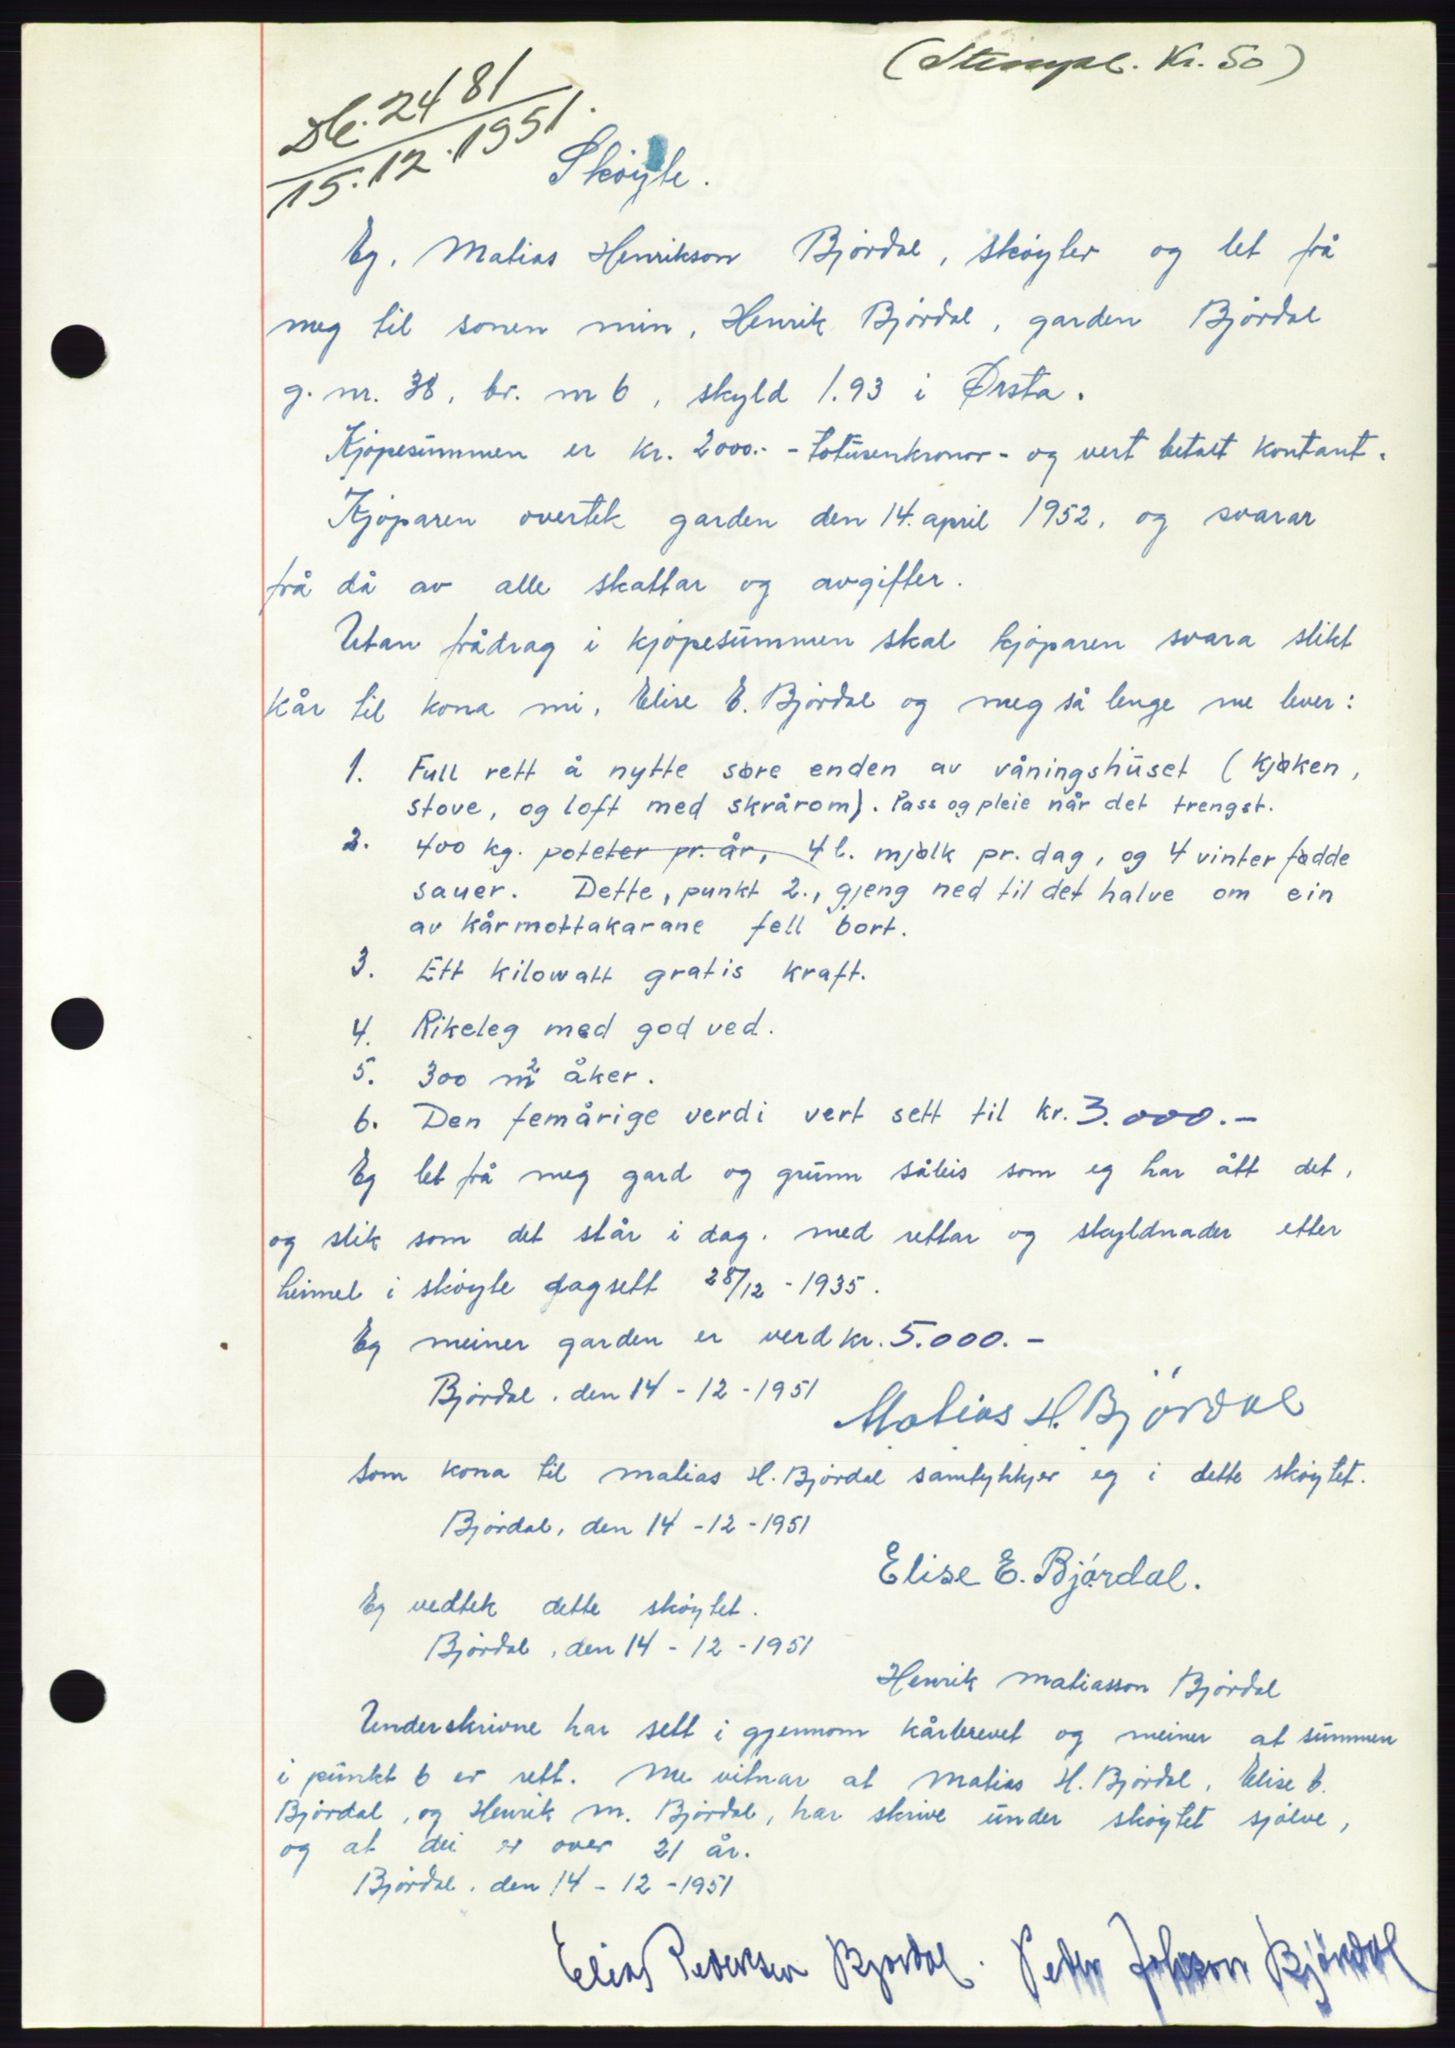 (Stempel. Kr. 50)
Db. 2481
15.12.1951.
Skøyte.
Eg, Matias Henrikson Bjørdal, skøyter og let frå
meg til sonen min, Henrik Bjørdal, garden Bjørdal
g. nr. 38, br. nr 6, skyld 1.93 i Ørsta.
Kjøpesummen er kr. 2000.- - totusenkronor - og vert betalt kontant.
Kjøparen overtek garden den 14. april 1952, og svarar
frå då av alle skattar og avgifter.
Utan frådrag i kjøpesummen skal kjøparen svara slikt
kår til kona mi, Elise E. Bjørdal og meg så lenge me lever:
1. Full rett å nytte søre enden av våningshuset (kjøken,
stove, og loft med skrårom). Pass og pleie når det trengst.
2. 400 kg. poteter pr. år, 4 l. mjølk pr. dag, og 4 vinterfødde
sauer. Dette, punkt 2., gjeng ned til det halve om ein
av kårmottakarane fell bort.
3. Ett kilowatt gratis kraft.
4. Rikeleg med god ved.
5. 300 m² åker.
6. Den femårige verdi vert sett til kr. 3.000.-
Eg let frå meg gard og grunn såleis som eg har ått det,
og slik som det står i dag, med rettar og skyldnader etter
heimel i skøyte dagsett 28/12 - 1935.
Eg meiner garden er verd kr. 5.000.-
Bjørdal, den 14 - 12 - 1951
Matias H. Bjørdal
Som kona til Matias H. Bjørdal samtykkjer eg i dette skøytet.
Bjørdal, den 14 - 12 - 1951
Elise E. Bjørdal.
Eg vedtek dette skøytet.
Bjørdal, den 14 - 12 - 1951
Henrik Matiasson Bjørdal
Underskrivne har sett i gjennom kårbrevet og meiner at summen
i punkt 6 er rett. Me vitnar at Matias H. Bjørdal, Elise E.
Bjørdal, og Henrik M. Bjørdal, har skrive under skøytet sjølve,
og at dei er over 21 år.
Bjørdal, den 14 - 12 - 1951
Elias Pedersen Bjørdal. Peder Johnson Bjørdal